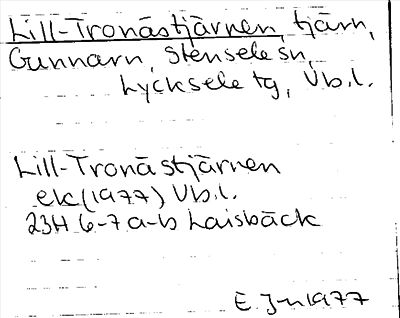 Lill-Tronåstjärnen, tjärn,
Gunnarn, Stensele sn,
Lycksele tg, Vb.l.
Lill-Tronåstjärnen
ek (1977) Vb.l.
23H 6-7 a-b Laisbäck
E. J-n 1977